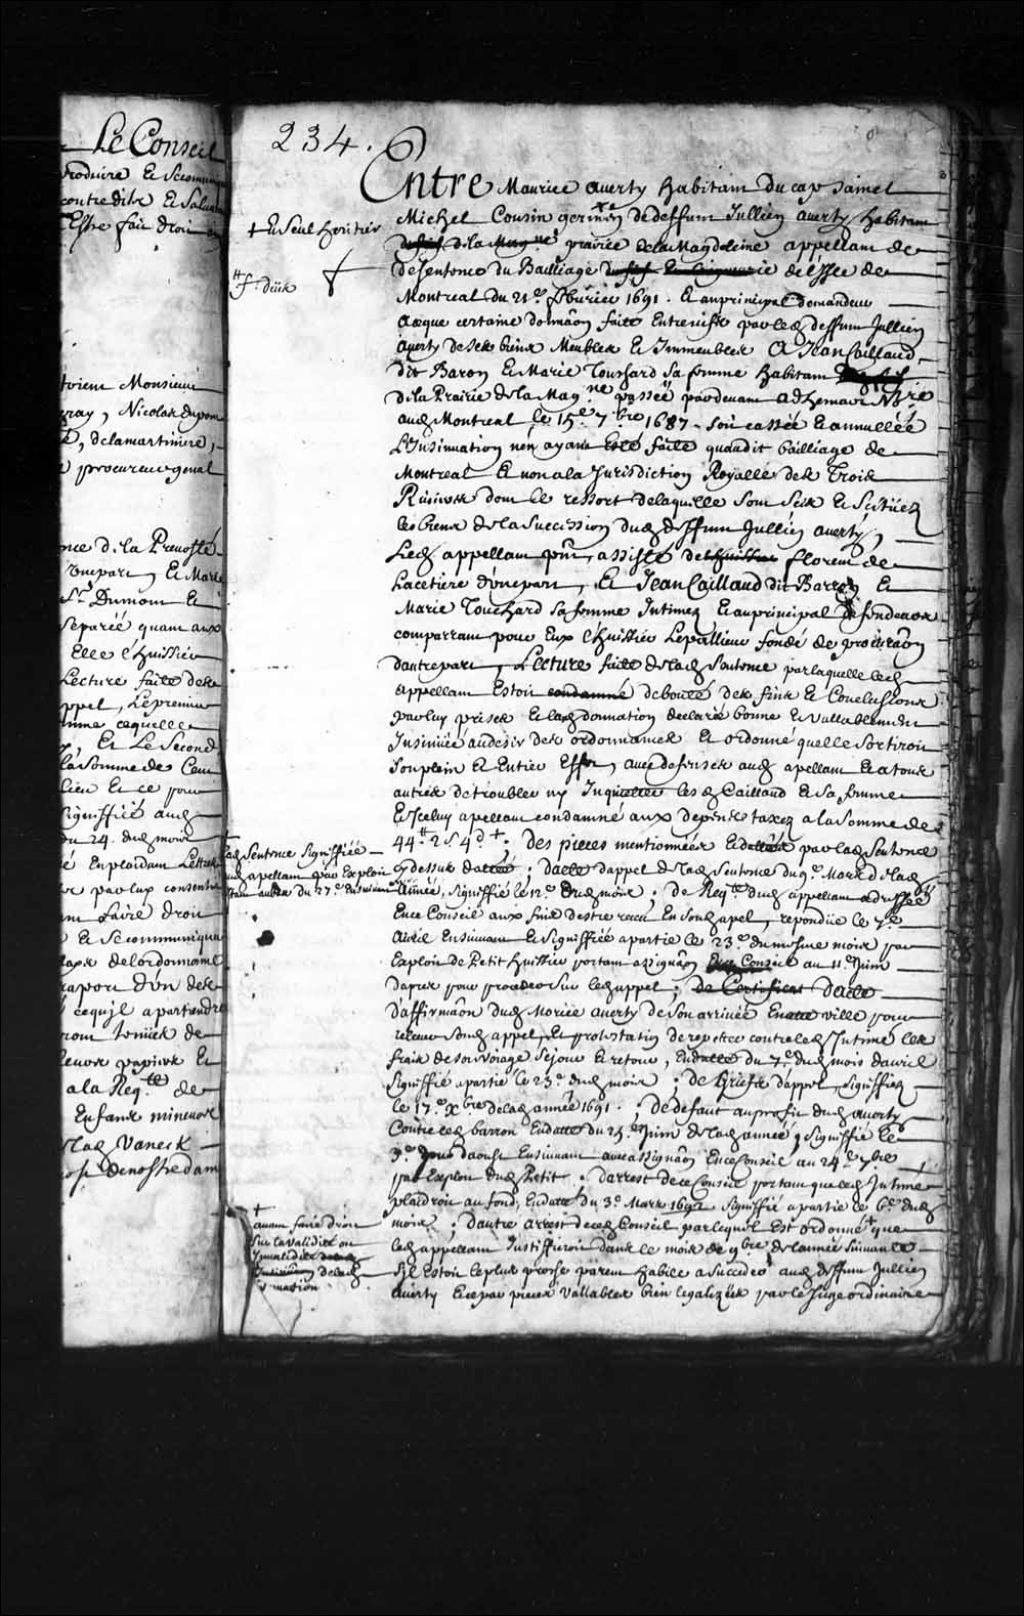 Le Conseil
produire Et Se communi
contredits Et Salua
Estre fait droit
toient Monsieur
ray, Nicolas dupon
delamartiniere,
procureur gnal
nce de la Prevosté
d'une part, Et Marie
Sr. Dumont Et
separée quant aux
Elle l'huissier
Lecture faite des
appel, Le premier
Et Le Second
la Somme de Cent
lieu Et ce pour
Signiffié aud
du 24. dud mois
En plaidant Lettres
par luy consenti
faire droit
Et Se communiqu
de lordonnance
rapport d'un des
ce qu'il apartiendra
leurs papiers Et
a la Reqte. de
Enfans mineurs
lad Vaneck
Denostredam
234.
Entre Maurice Averty habitant du cap Sainct
Michel Cousin germain de deffunt Jullien averty habitant
+ Et Seul heritier
de la Magne prairie de la Magdeleine appellant de
de Sentence du Bailliage de l'isle de
Montreal du 21e. febvrier 1691. Et au principal demandeur
Aceque certaine donnaôn faite Entrevifs par led deffunt Jullien
Averty de Ses biens Meubles Et Immeubles A Jean Caillaud
Dit Baron Et Marie Touchard Sa femme habitans
de la Prairie de la Magne. passée pardevant Adhemar Nre
aud Montreal le 15e. 7bre 1687. Soit cassée Et annullée
L'Insinuation nen ayant Esté faite quaudit bailliage de
Montreal Et non a la Jurisdiction Royalle des Trois
Rivieres dont le ressort de laquelle Sont Scis Et Scituéz
les biens de la Succession dud deffunt Jullien averty,
Led appellant pnt, assisté de florent de
Lacetiere d'une part, Et Jean Caillaud dit Barron Et
Marie Touchard Sa femme Intimez Et au principal deffendeurs
comparrant pour Eux l'huissier Lepallieur fondé de procuraôn
dautre part, Lecture faite de lad Sentence par laquelle led
appellant Estoit condamné debouté des fins Et Conclusions
par luy prises Et lad donnation declarée bonne Et vallablement
Insinuée au desir des ordonnances Et ordonné quelle Sortiroit
Son plein Et Entier Effet, avec defenses aud apellant Et a tous
autres de troubler ny Inquietter lesd Caillaud Et Sa femme
Et Iceluy apellant condamné aux depens taxez a la Somme de
44tt. 2s. 4d. +; Des pieces mentionnées Et dattées par lad Sentence
lad Sentence Signiffiée
aud apellant par Exploit
du 27e. du mesme mois
cy dessus dattée; dacte dappel de lad Sentence du 9e. Mars de lad
Année, Signiffié le 12e. dud mois; de Reqte dud appellant adressée
En ce Conseil aux fins destre receu En Sond apel, repondüe le 7e.
Avril Ensuivant Et Signiffiée a partie le 23e. du mesme mois par
Exploit de Petit huissier portant assignaôn En ce Conseil au 11e. Juin
dapres pour proceder Sur led appel; de Certificat dacte
d'affirmaôn dud Morice averty de Son arrivée En cette ville pour
relever Sond appel, Et protestation de repeter contre led Intimé les
frais de Son voiage Sejour Et retour, En datte du 7e. dud mois davril
Signiffié a partie le 23e. dud mois; de Griefs d'appel, Signiffiez
le 17e. Xbre de lad année 1691.; de defaut au profit dud Averty
Contre led barron En datte du 25. Juin de lad année, Signiffié le
3e. Jour daoust Ensuivant avec assignaôn En ce Conseil au 24e. 7bre
par Exploit dud Petit; d'arrest de ce Conseil portant que led Intimé
plaidroit au fond, En datte du 3e. Mars 1692 Signiffié a partie le 6e. dud
mois; dautre arrest de ce Conseil par lequel Est ordonné + que
+
avant faire droit
Sur la validité ou
Invalidité
de lad
donation
led appellant Justiffiroit dans le mois de 9bre de l'année Suivante
Sil Estoit le plus proche parent habile a Succeder aud deffunt Jullien
Averty Et ce par pieces vallables bien legalizées par le Juge ordinaire